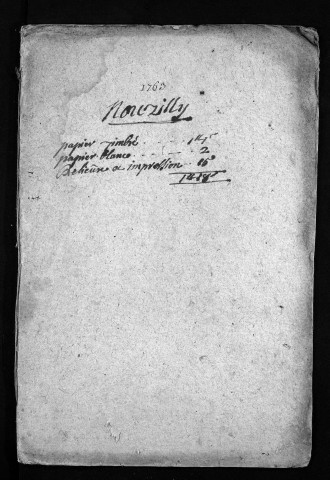 1763
Nouzilly
papier timbré . . . . 1lt 1s
papier blanc . . . . . 2
Relieure et impression . . 15s
1lt 18s